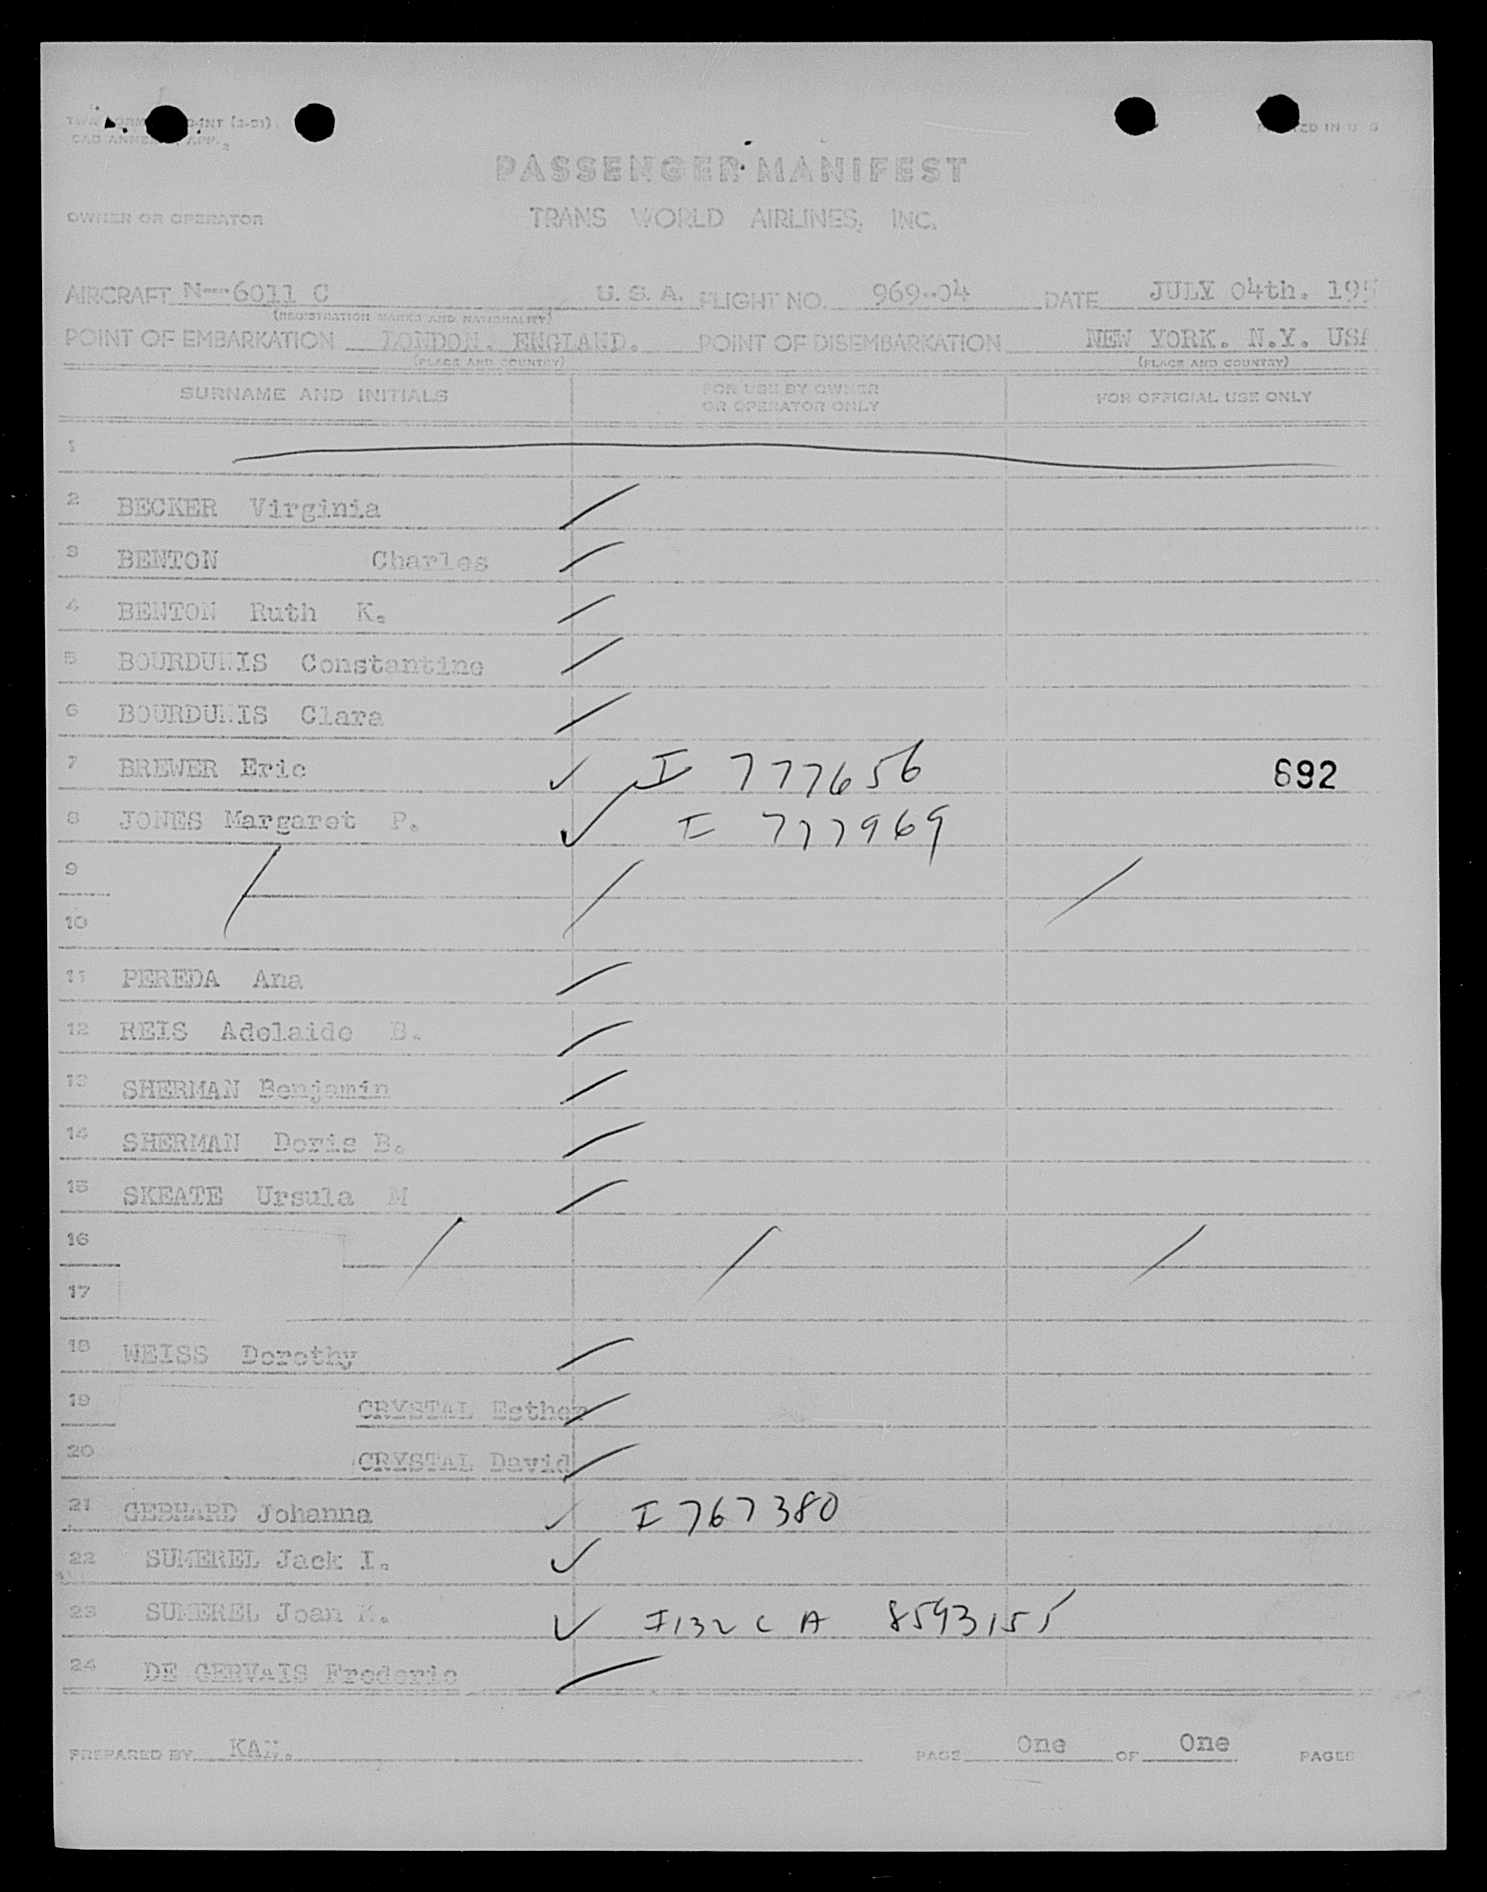 PRINTED IN U S
CAO ANNEX
PASSENGER MANIFEST
OWNER OR OPERATOR TRANS WORLD AIRLINES, INC.
AIRCRAFT N--6011 C U. S. A. FLIGHT NO. 969-04 DATE JULY 04th. 195
(REGISTRATION MARKS AND NATIONALITY)
POINT OF EMBARKATION LONDON. ENGLAND. POINT OF DISEMBARKATION NEW YORK. N.Y. USA
(PLACE AND COUNTRY) (PLACE AND COUNTRY)
SURNAME AND INITIALS FOR USE BY OWNER OR OPERATOR ONLY FOR OFFICIAL USE ONLY
1
2 BECKER Virginia
3 BENTON Charles
4 BENTON Ruth K.
5 Constantine
6 Clara
7 BREWER Eric I 777656 692
8 JONES Margaret P. I 777969
9
10
11 PEREDA Ana
12 REIS Adelaide B.
13 SHERMAN Benjamin
14 SHERMAN Doris B.
15 SKEATE Ursula M
16
17
18 WEISS Dorothy
19 CRYSTAL Esther
20 CRYSTAL David
21 GEBHARD Johanna I 767380
22 SUMEREL Jack I.
23 SUMEREL Joan M. I132 C A 8593155
24 DE GERVAIS Frederic
PREPARED BY KAN. PAGE One OF One PAGES